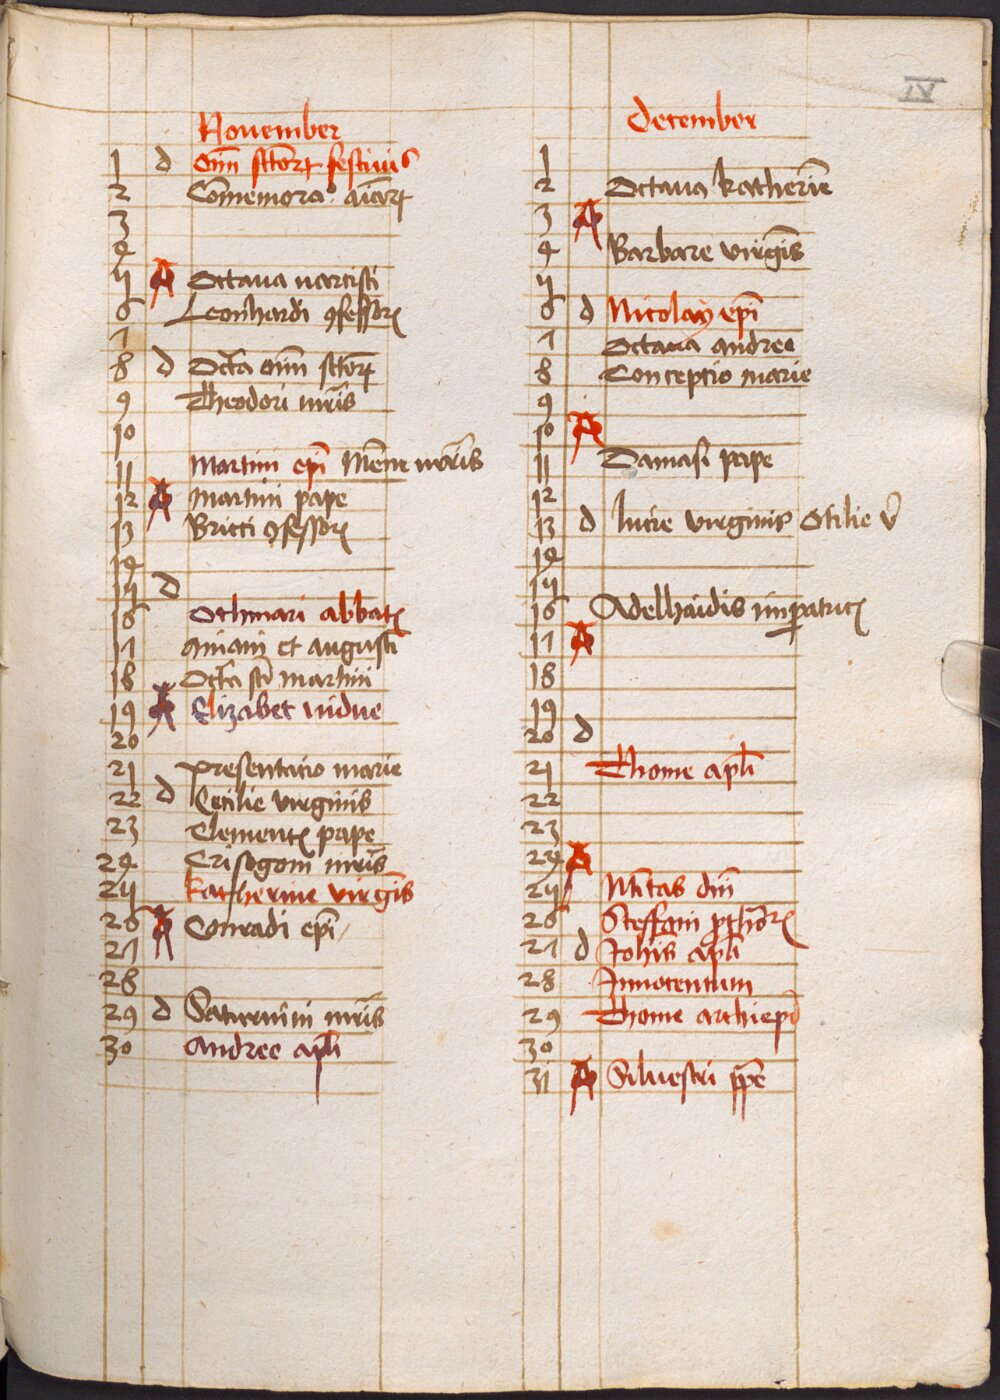 IV
November
1 d Om̄ sctōrꝝ festiuis
2 Cōmemora° aīarꝝ
3
4
5 A Octaua narcisti
6 Leonhardi ꝯfessorꝭ
7
8 d Octa om̄ sctōrꝝ
9 Theodori mr̄is
10
11 Martini ep̄i Mēne mr̄is
12 A Martini pape
13 Bricti ꝯfessorꝭ
14
15 d
16 Othmari abbatꝭ
17 Aniani et augusti
18 Octa sc̄i martini
19 A Elizabet uidue
20
21 Presentatio marie
22 d Cecilie virginis
23 Clementꝭ pape
24 Crisogoni mr̄is
25 Katherine virgīs
26 A Conradi ep̄i
27
28
29 d Saturnini mr̄is
30 Andree apl̄i
December
1
2 Octaua katherīe
3 A
4 Barbare virgīs
5
6 d Nicolaÿ ep̄i
7 Octaua andree
8 Conceptio marie
9
10 A
11 Damasi pape
12
13 d lucie virginis Otilie v̄
14
15
16 Adelhaidis imꝑatricꝭ
17 A
18
19
20 d
21 Thome apl̄i
22
23
24 A
25 Nītas dn̄i
26 Steffani ꝓthōrꝭ
27 d Johīs apl̄i
28 Innocentum
29 Thome archiep̄i
30
31 A Siluestri pp̄e